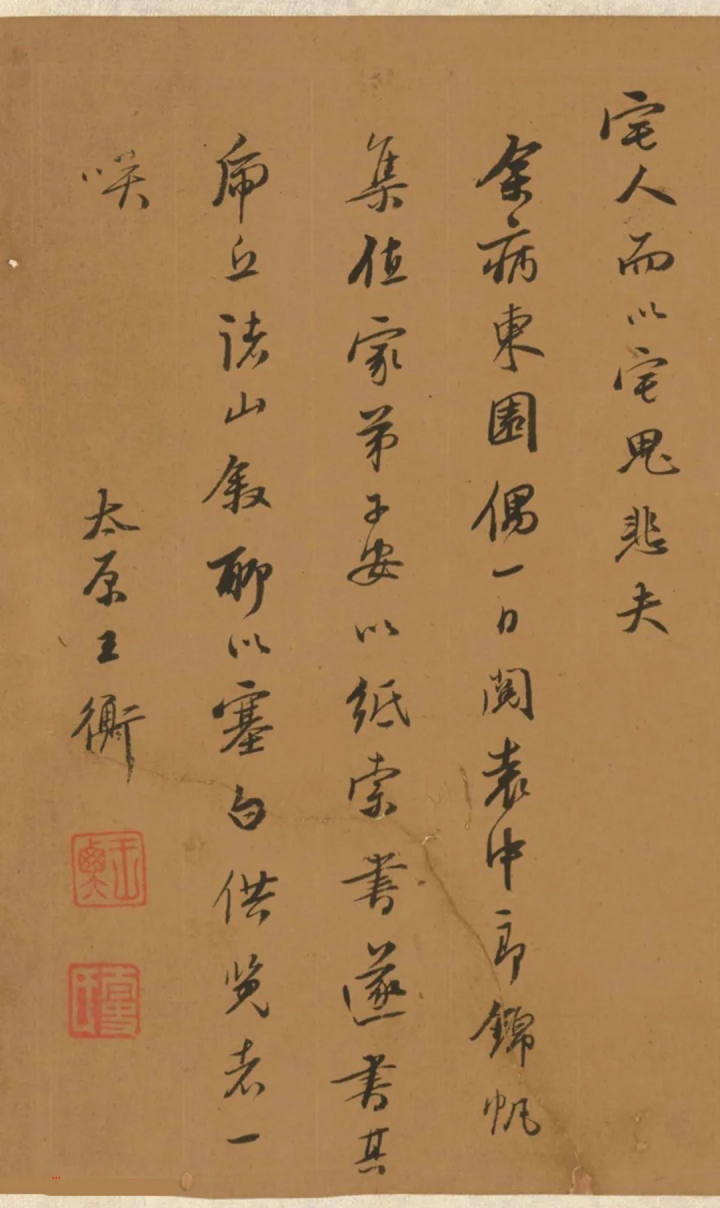 宅人而以宅鬼悲夫
余病東園偶一日閱袁中郎錦帆
集值家弟子安以紙索書遂書其
虎丘諸山敘聊以塞白供覽者一
咲
太原王衡